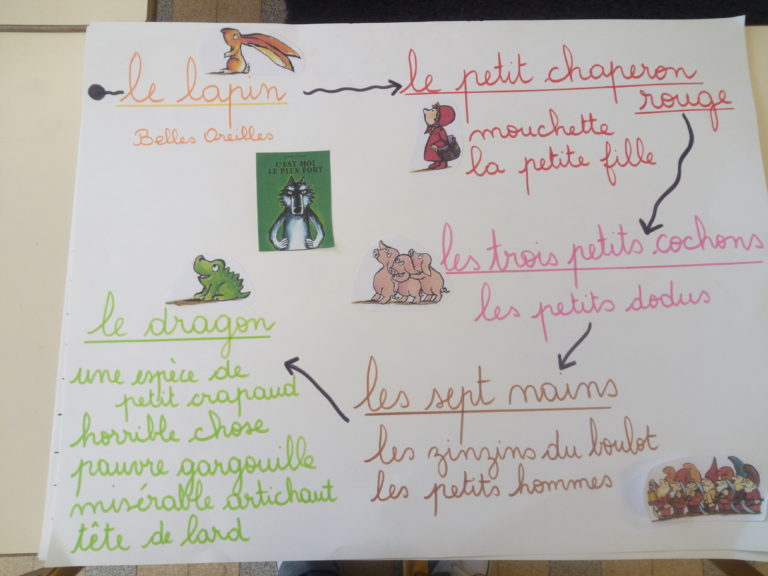 le lapin
Belles Oreilles
le petit chaperon
rouge
mouchette
la petite fille
C'EST MOI
LE PLUS FORT
les trois petits cochons
les petits dodus
les sept nains
les zinzins du boulot
les petits hommes
le dragon
une espèce de
petit crapaud
horrible chose
pauvre gargouille
misérable artichaut
tête de lard